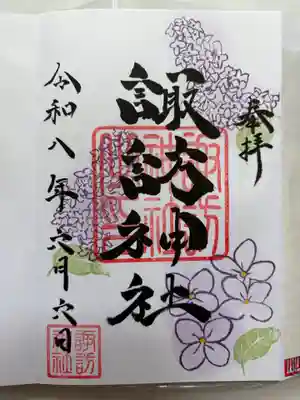 奉拝
諏訪神社
諏訪神社
令和八年六月六日
諏訪社